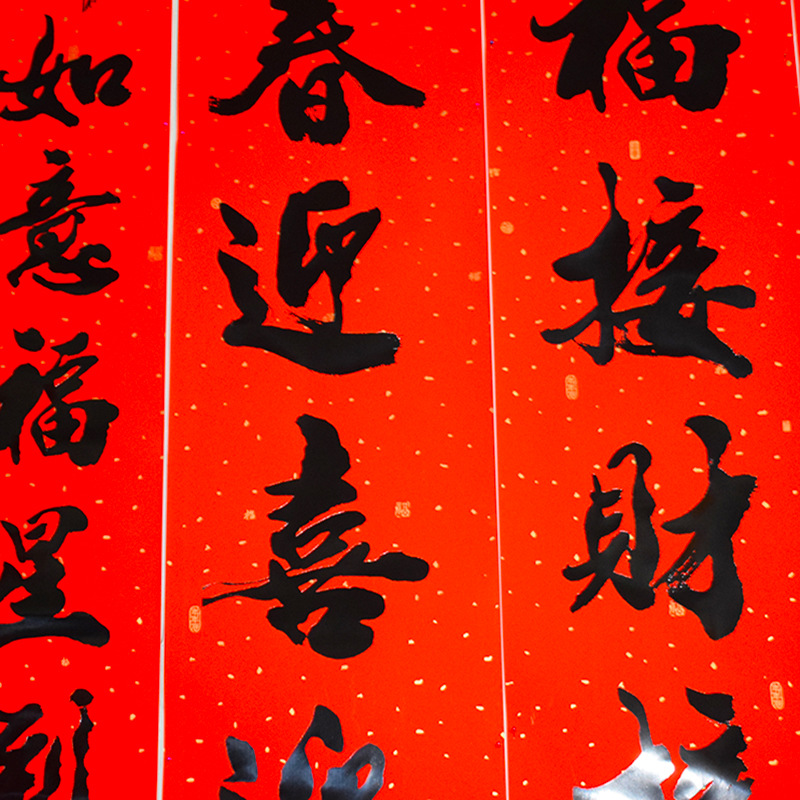 如意福星到
春迎喜迎
福接財接